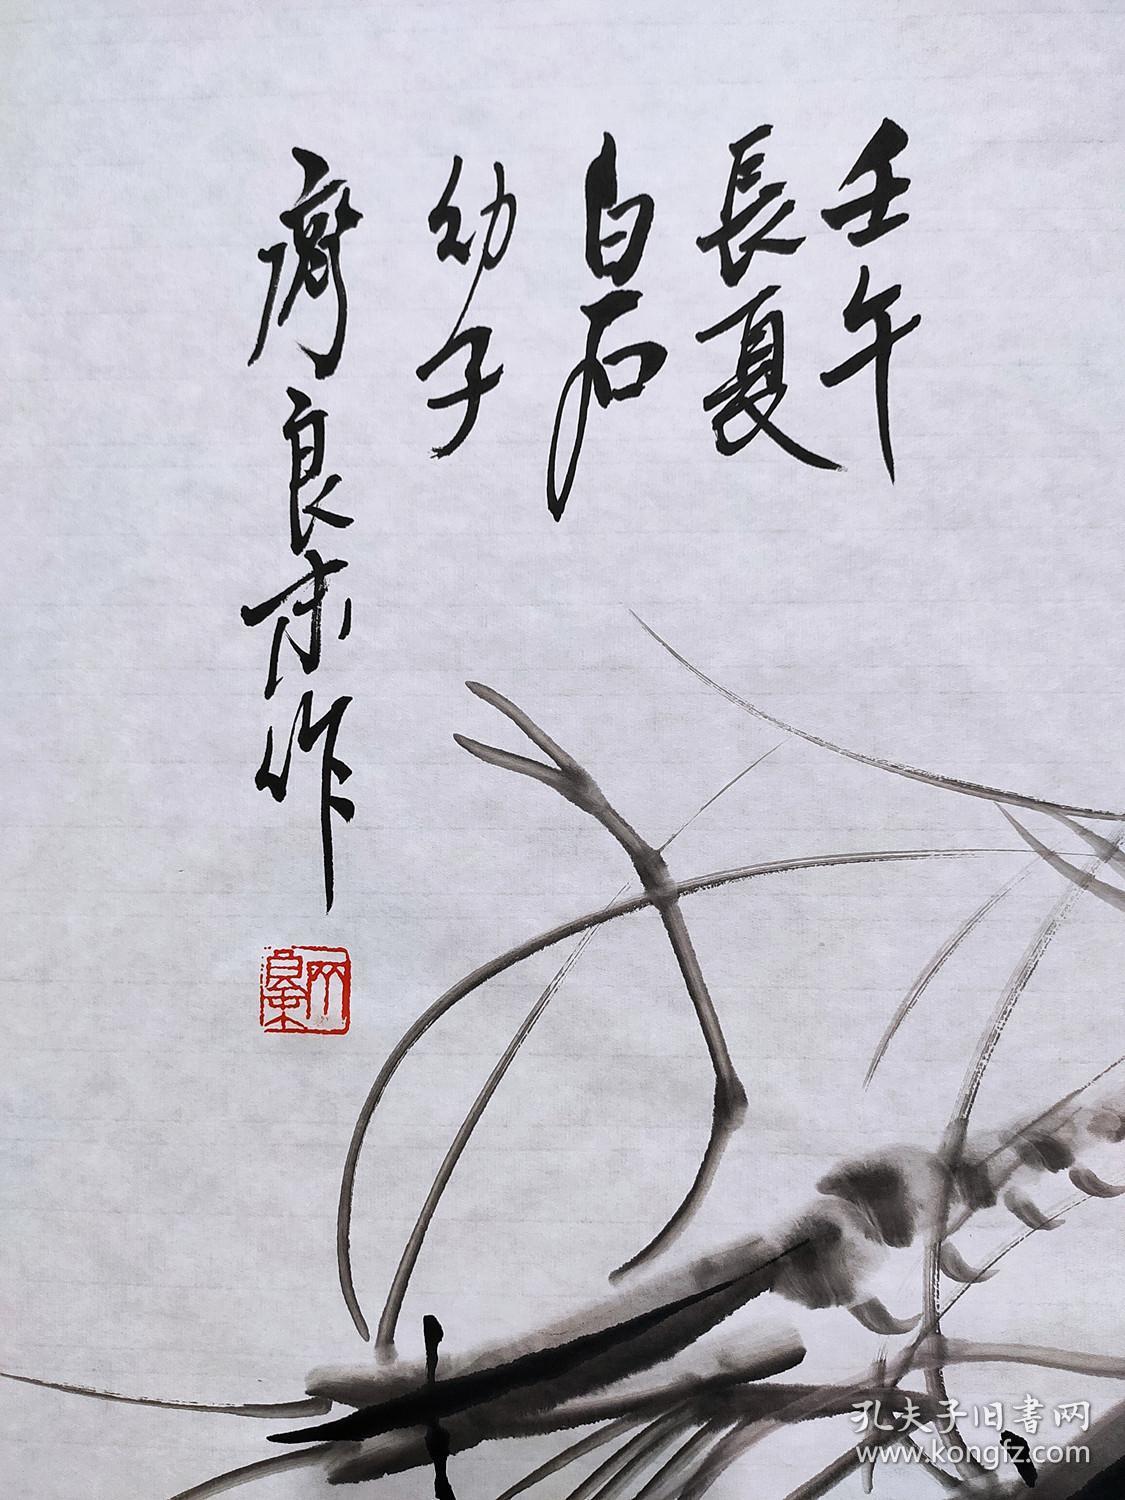 壬午
長夏
白石
幼子
齊良末作
孔夫子旧書网
www.kongfz.com